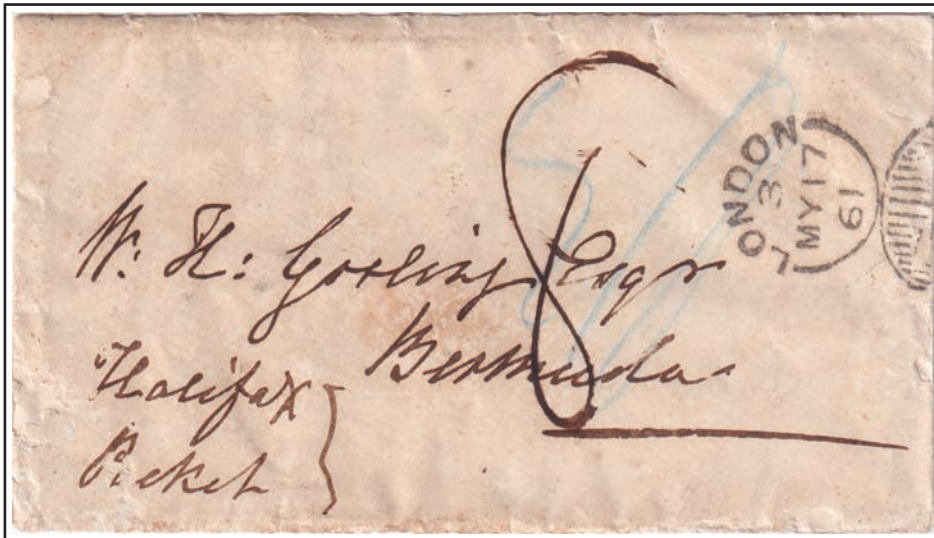 LONDON
3
MY 17
61
8
W: H: Gosling Esqr
Bermuda
Halifax
Packet